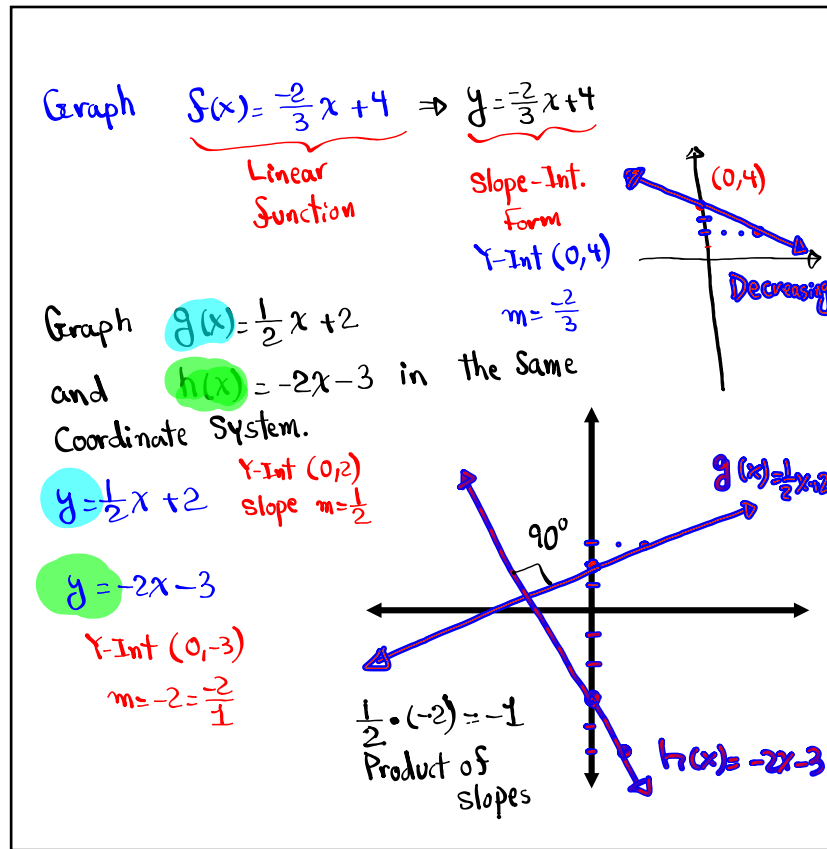 Graph f(x) = -2/3 x + 4 ⇒ y = -2/3 x + 4
Linear
function
Slope-Int.
Form
Y-Int (0,4)
m = -2/3
(0,4)
Decreasing
Graph g(x) = 1/2 x + 2
and h(x) = -2x - 3 in the Same
Coordinate System.
y = 1/2 x + 2
Y-Int (0,2)
Slope m = 1/2
y = -2x - 3
Y-Int (0,-3)
m = -2 = -2/1
g(x) = 1/2 x + 2
90°
1/2 · (-2) = -1
Product of
slopes
h(x) = -2x - 3